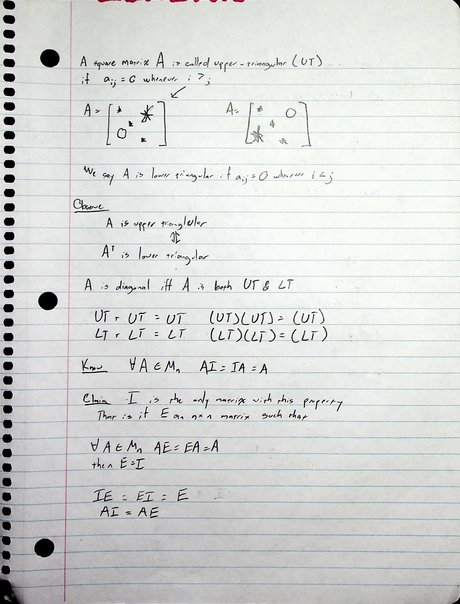 A square matrix A is called upper-triangular (UT)
if aij = 0 whenever i > j
A = [ * * 0 * ] A = [ * 0 * * ]
We say A is lower triangular if aij = 0 whenever i < j
Observe
A is upper trianglular
⇕
Aᵀ is lower triangular
A is diagonal iff A is both UT & LT
UT + UT = UT (UT)(UT) = (UT)
LT + LT = LT (LT)(LT) = (LT)
Know ∀ A ∈ Mn AI = IA = A
Claim I is the only matrix with this property
That is if E an n×n matrix such that
∀ A ∈ Mn AE = EA = A
then E = I
IE = EI = E
AI = AE